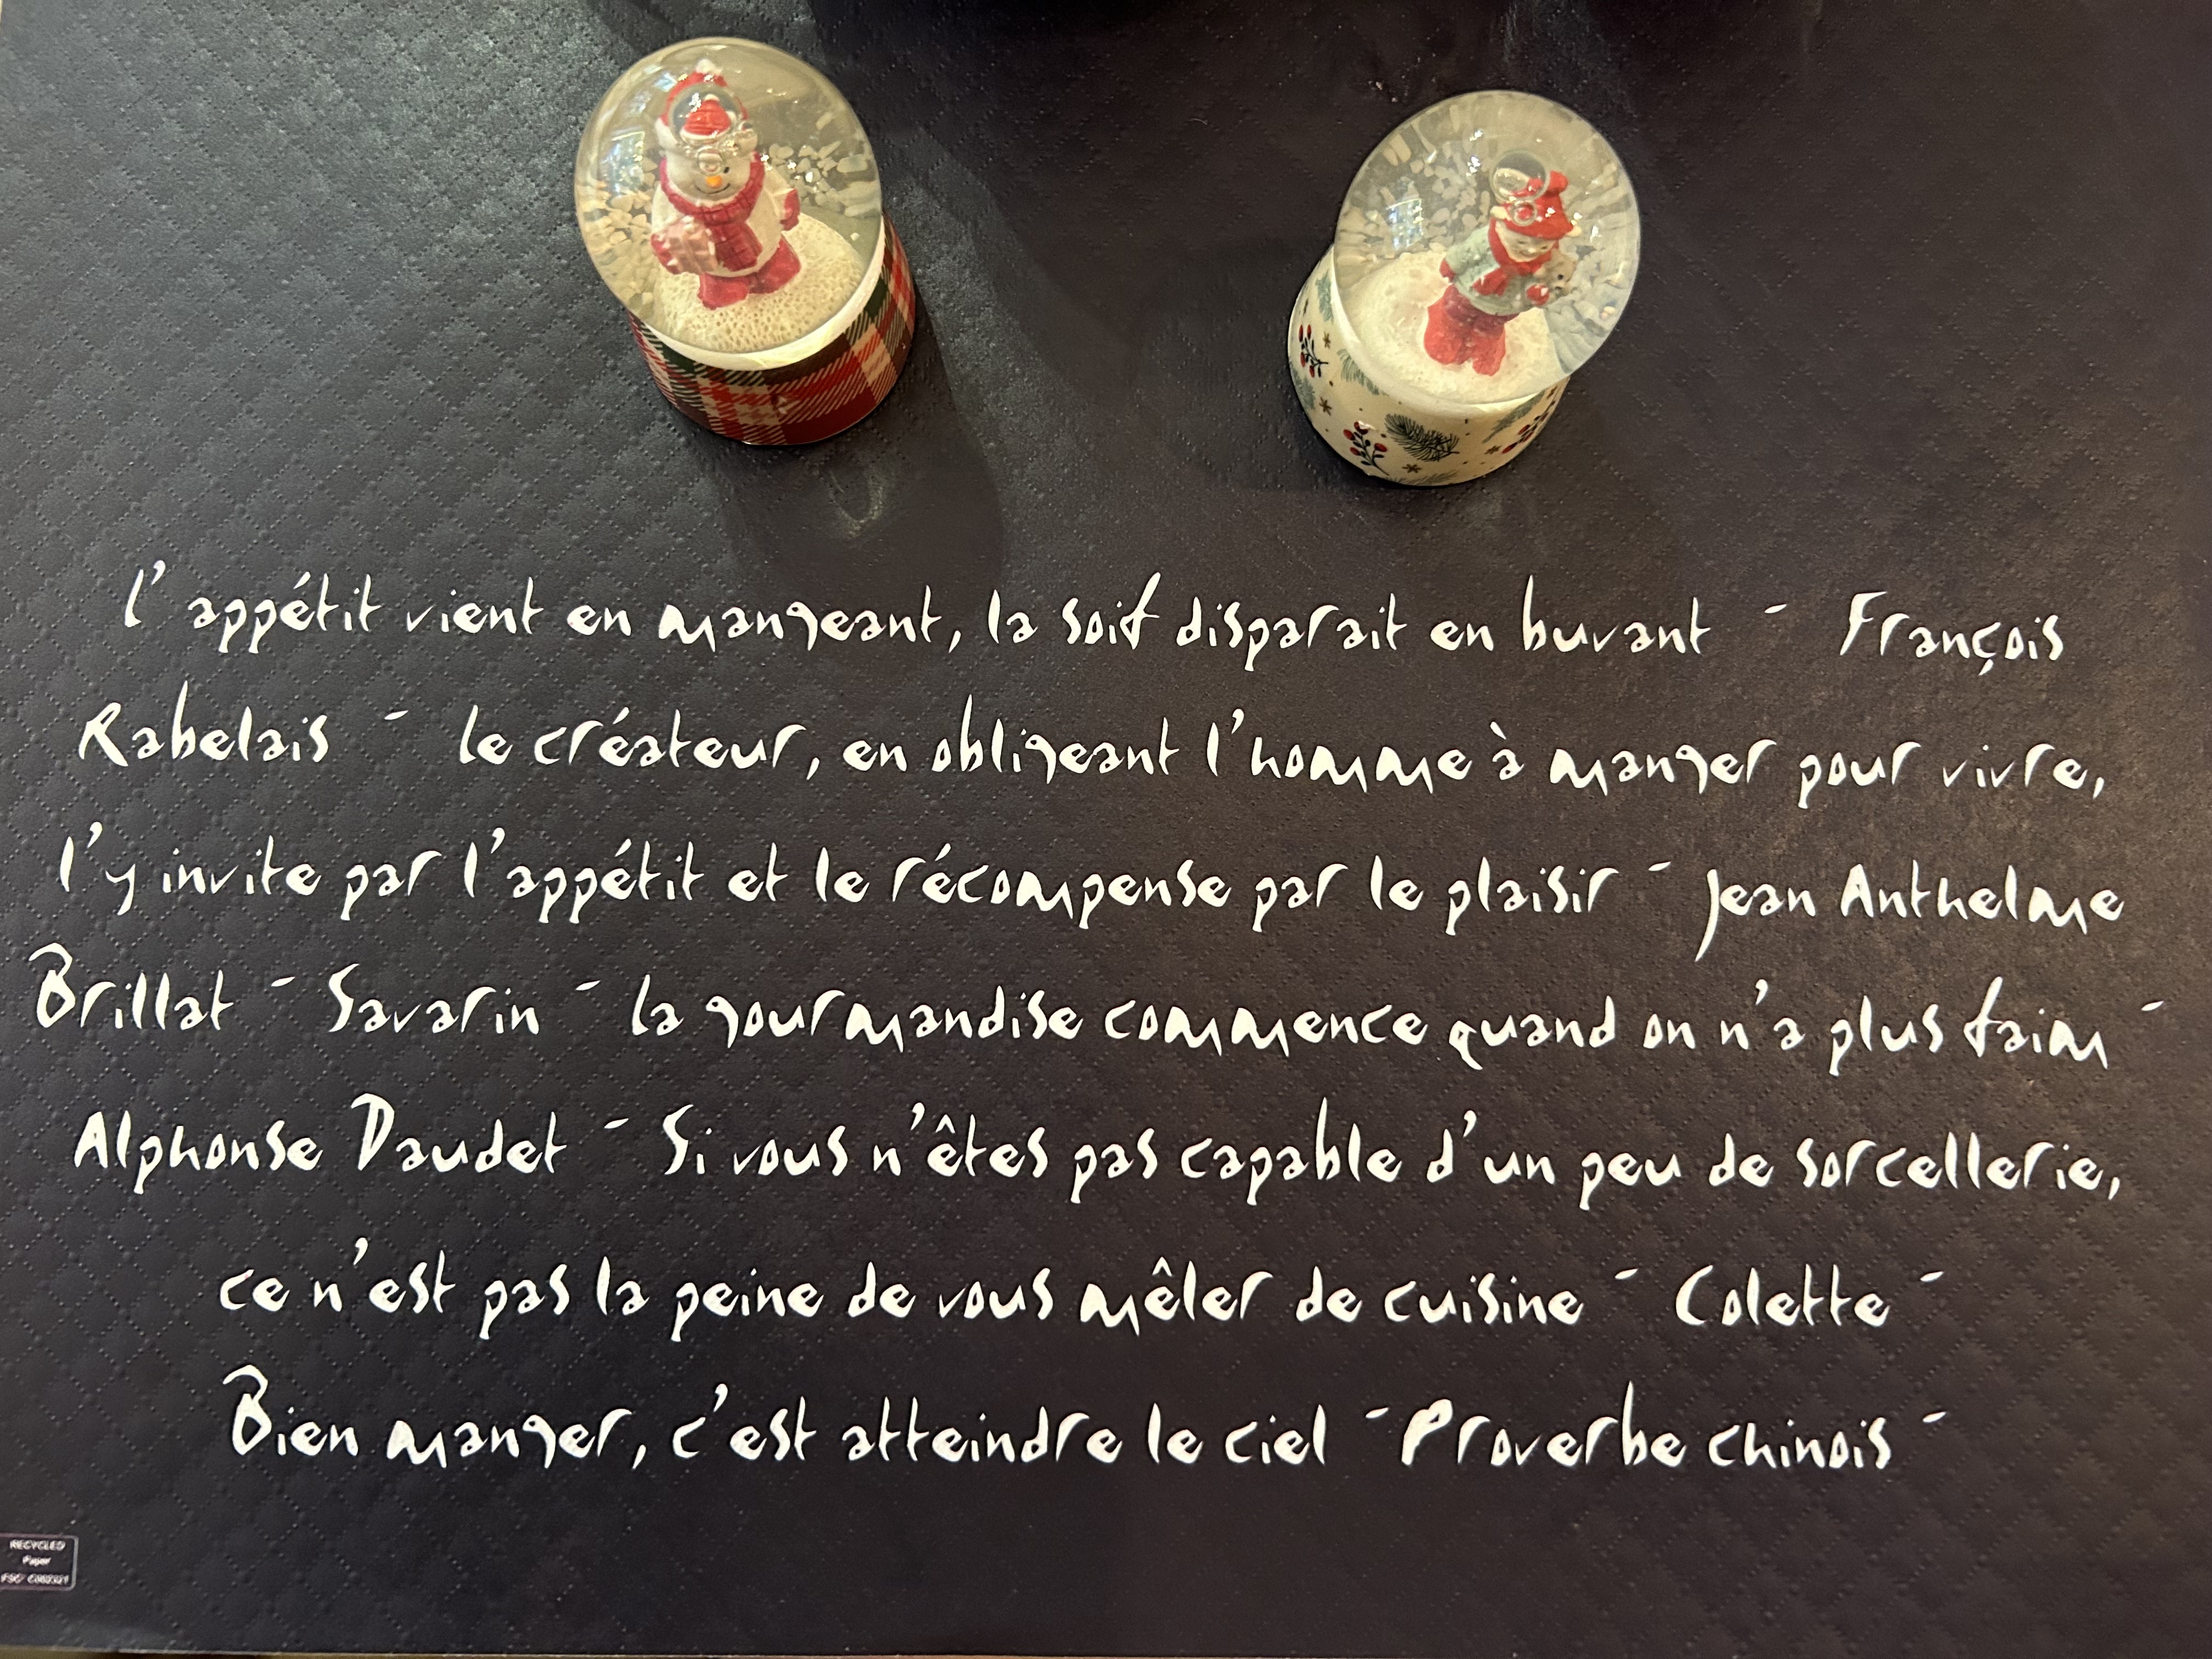 l'appétit vient en mangeant, la soif disparait en buvant - François
Rabelais - le créateur, en obligeant l'homme à manger pour vivre,
l'y invite par l'appétit et le récompense par le plaisir - Jean Anthelme
Brillat - Savarin - la gourmandise commence quand on n'a plus faim -
Alphonse Daudet - Si vous n'êtes pas capable d'un peu de sorcellerie,
ce n'est pas la peine de vous mêler de cuisine - Colette -
Bien manger, c'est atteindre le ciel - Proverbe chinois -
RECYCLED
Paper
FSC